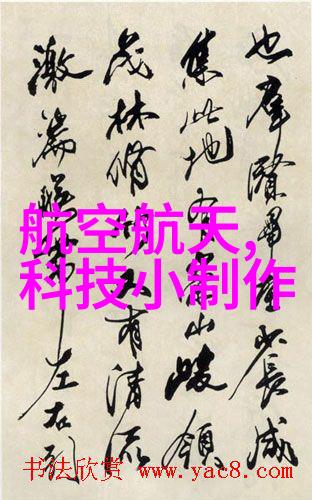 也羣賢畢至少長咸
集此地有崇山峻領
茂林脩竹又有清流
激湍暎帶左右引
航空航天,
科技小制作
书法欣赏 www.yac8.com